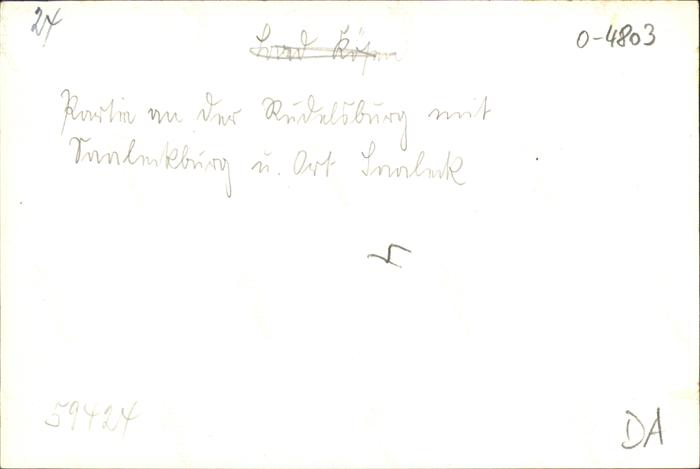 24
0-4803
Bad Kösen
Partie an der Rudelsburg mit
Saaleckburg u. Ort Saaleck
59424
DA